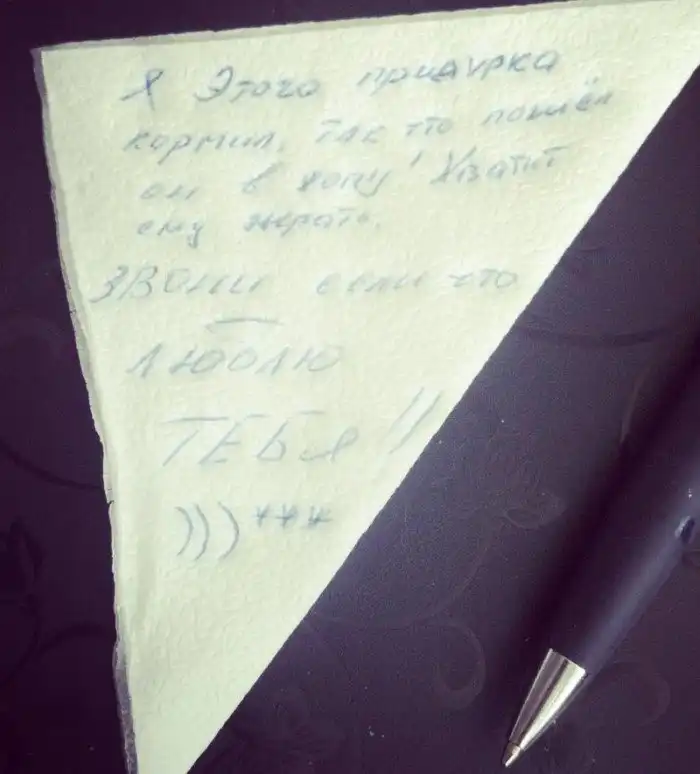 Я Этого придурка
кормил, так что пошёл
он в жопу! Хватит
ему жрать.
Звони если что
люблю
ТЕБя !!
)))***